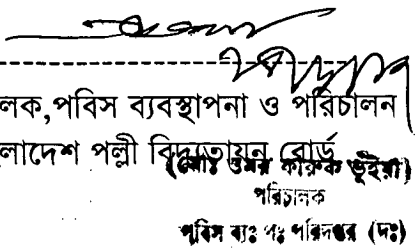 লক,পবিস ব্যবস্থাপনা ও পরিচালন
লাদেশ পল্লী বিদ্যুতায়ন বোর্ড
(মোঃ ওমর ফারুক ভূঁইয়া)
পরিচালক
পবিস ব্যঃ পঃ পরিদপ্তর (দঃ)